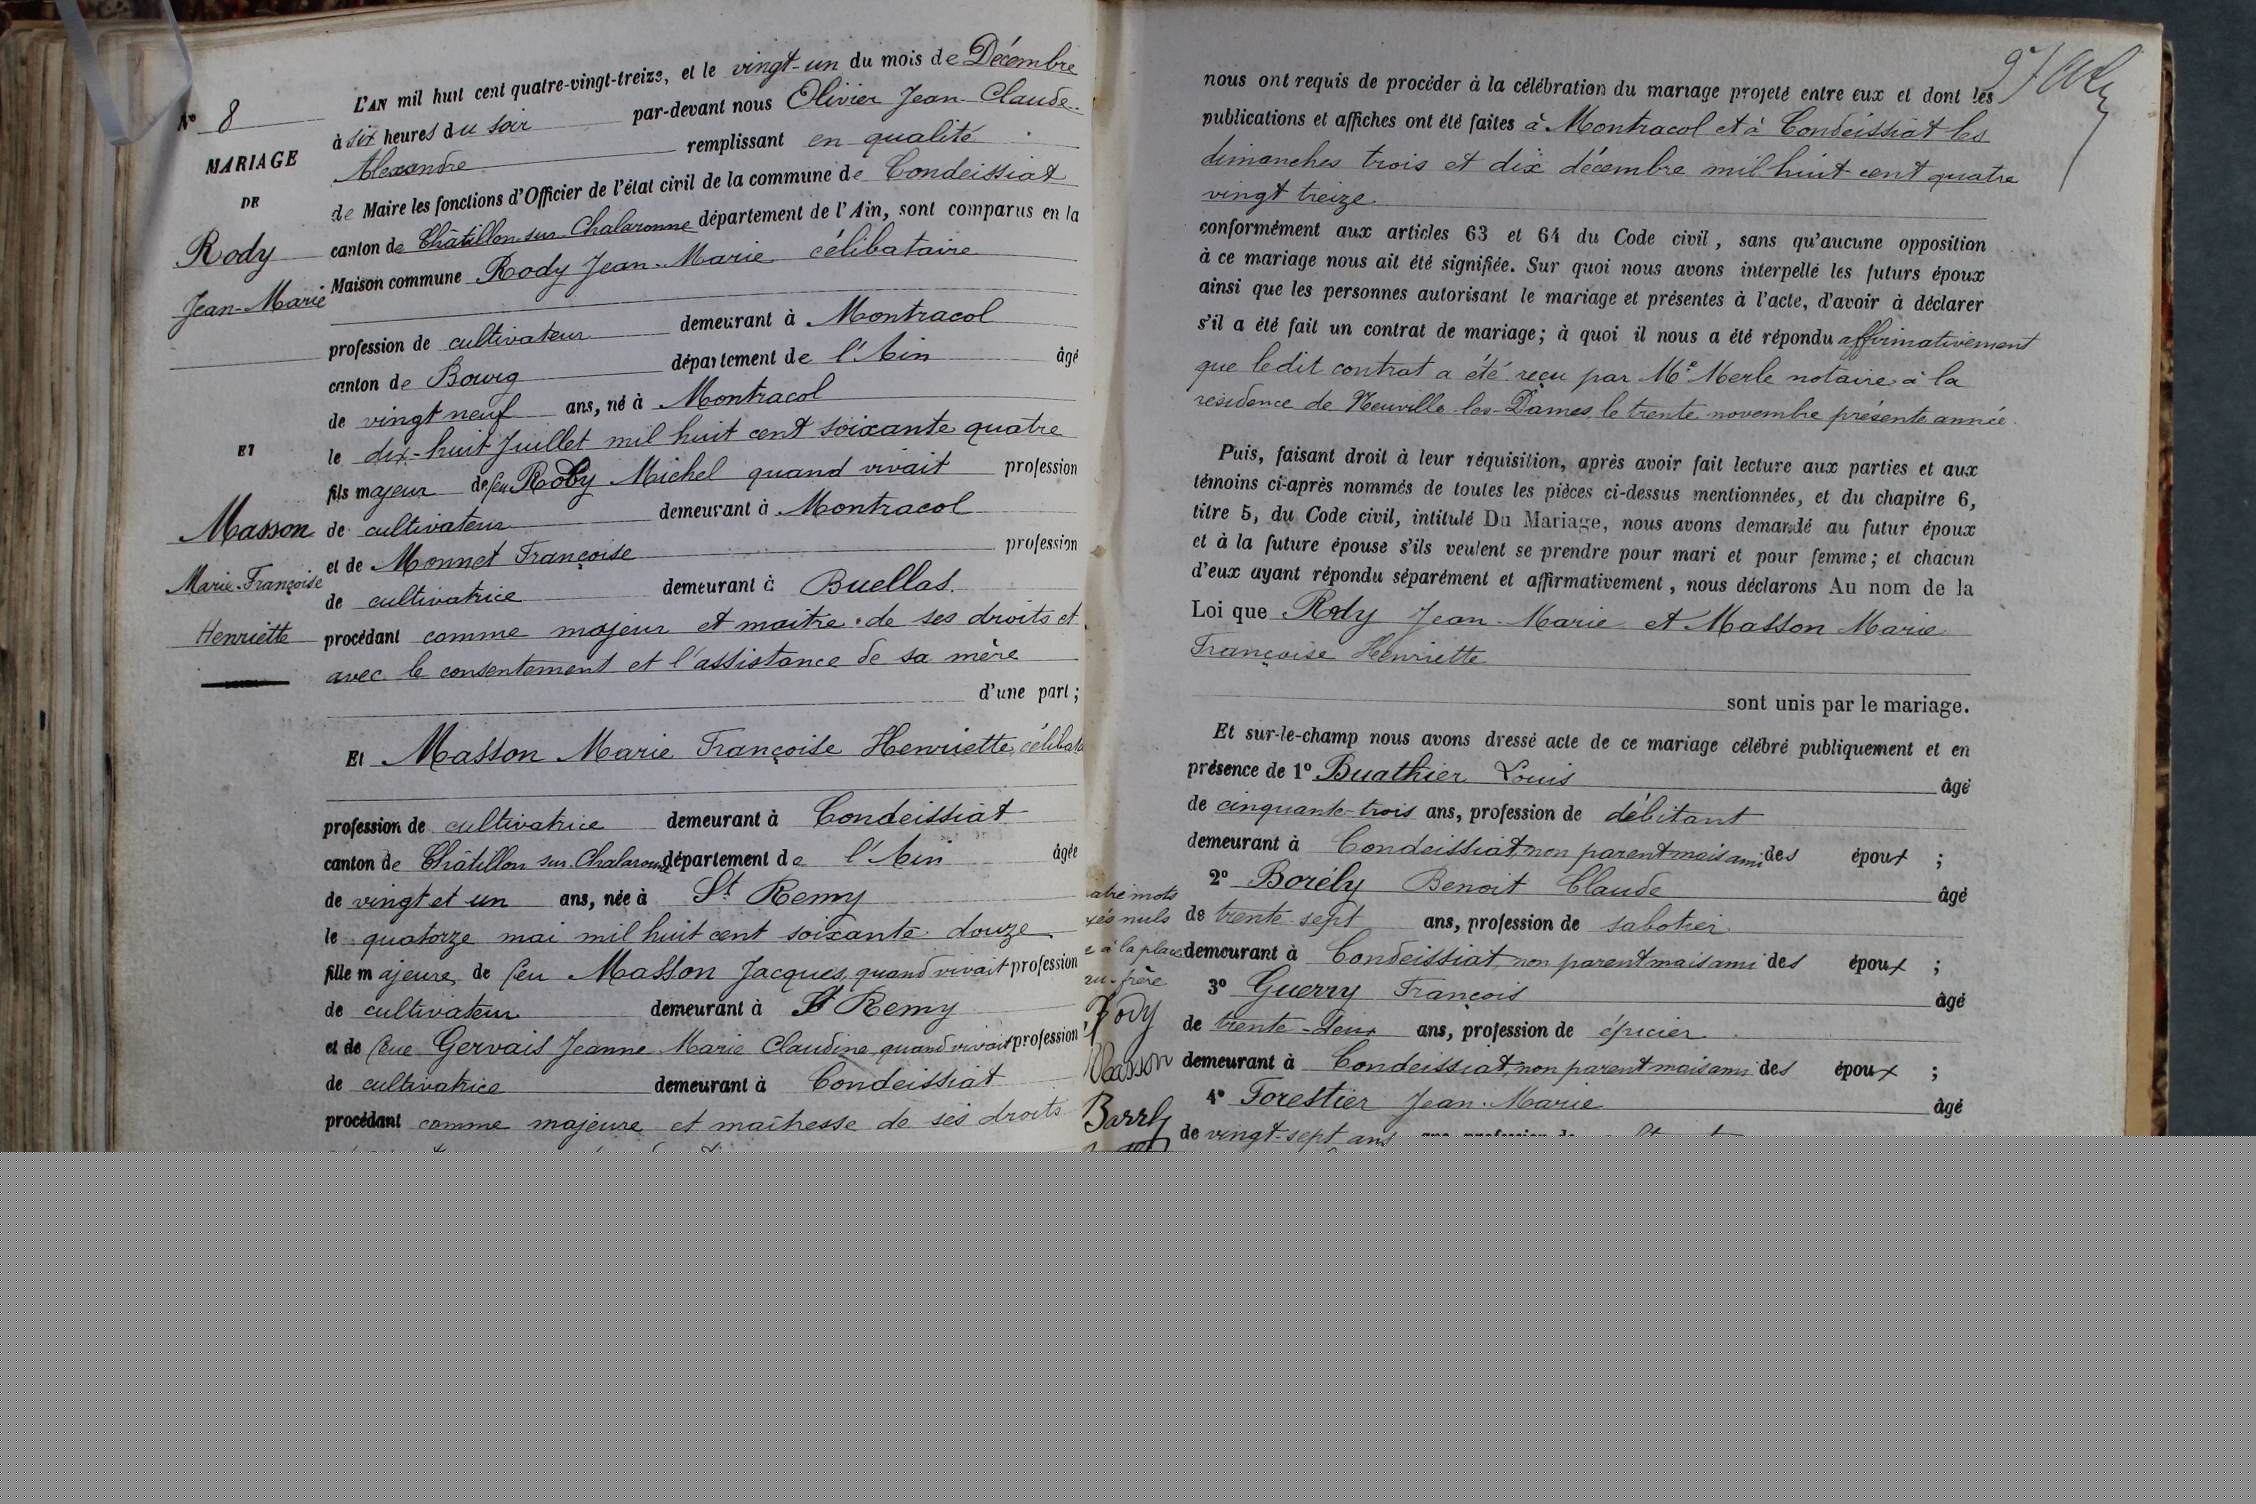 N° 8
MARIAGE
DE
Rody
Jean-Marie
ET
Masson
Marie-Françoise
Henriette
L'AN mil huit cent quatre-vingt-treize, et le vingt-un du mois de Décembre
à six heures du soir par-devant nous Olivier Jean-Claude
Alexandre remplissant en qualité
de Maire les fonctions d'Officier de l'état civil de la commune de Condeissiat
canton de Châtillon sur Chalaronne département de l'Ain, sont comparus en la
Maison commune Rody Jean-Marie célibataire
profession de cultivateur demeurant à Montracol
canton de Bourg département de l'Ain âgé
de vingt neuf ans, né à Montracol
le dix-huit Juillet mil huit cent soixante quatre
fils majeur de feu Rody Michel quand vivait profession
de cultivateur demeurant à Montracol
et de Monnet Françoise profession
de cultivatrice demeurant à Buellas.
procédant comme majeur et maître de ses droits et
avec le consentement et l'assistance de sa mère
d'une part;
Et Masson Marie Françoise Henriette, célibata
profession de cultivatrice demeurant à Condeissiat
canton de Châtillon sur Chalaronne département de l'Ain âgée
de vingt et un ans, née à St Remy
le quatorze mai mil huit cent soixante douze
fille majeure de feu Masson Jacques, quand vivait profession
de cultivateur demeurant à St Remy
et de feue Gervais Jeanne Marie Claudine quand vivait profession
de cultivatrice demeurant à Condeissiat
procédant comme majeure et maîtresse de ses droits
nous ont requis de procéder à la célébration du mariage projeté entre eux et dont les
publications et affiches ont été faites à Montracol et à Condeissiat les
dimanches trois et dix décembre mil huit cent quatre
vingt treize
conformément aux articles 63 et 64 du Code civil, sans qu'aucune opposition
à ce mariage nous ait été signifiée. Sur quoi nous avons interpellé les futurs époux
ainsi que les personnes autorisant le mariage et présentes à l'acte, d'avoir à déclarer
s'il a été fait un contrat de mariage; à quoi il nous a été répondu affirmativement
que ledit contrat a été reçu par Me Merle notaire à la
résidence de Neuville-les-Dames, le trente novembre présente année.
Puis, faisant droit à leur réquisition, après avoir fait lecture aux parties et aux
témoins ci-après nommés de toutes les pièces ci-dessus mentionnées, et du chapitre 6,
titre 5, du Code civil, intitulé Du Mariage, nous avons demandé au futur époux
et à la future épouse s'ils veulent se prendre pour mari et pour femme; et chacun
d'eux ayant répondu séparément et affirmativement, nous déclarons Au nom de la
Loi que Rody Jean-Marie et Masson Marie
Françoise Henriette
sont unis par le mariage.
Et sur-le-champ nous avons dressé acte de ce mariage célébré publiquement et en
présence de 1° Buathier Louis âgé
de cinquante-trois ans, profession de débitant
demeurant à Condeissiat, non parent mais ami des époux ;
2° Borély Benoit Claude âgé
de trente-sept ans, profession de sabotier
demeurant à Condeissiat, non parent mais ami des époux ;
3° Guerry François âgé
de trente-deux ans, profession de épicier
demeurant à Condeissiat, non parent mais ami des époux ;
4° Forestier Jean-Marie âgé
de vingt-sept ans
atre mots
nuls
à la place
frère
Rody
Masson